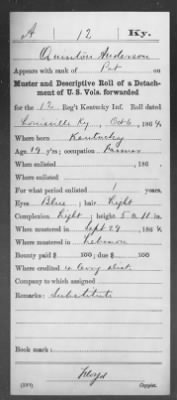 A 12 Ky.
Quinton Anderson
Appears with rank of Pvt on
Muster and Descriptive Roll of a Detach-
ment of U. S. Vols. forwarded
for the 12 Reg't Kentucky Inf. Roll dated
Louisville Ky Oct 6, 1864
Where born Kentucky
Age 19 y'rs; occupation Farmer
When enlisted , 186
Where enlisted
For what period enlisted 1 years.
Eyes Blue; hair Light
Complexion Light; height 5 ft. 11 in.
When mustered in Sept 29, 1864
Where mustered in Lebanon
Bounty paid $ 100; due $ 100
Where credited
Company to which assigned
Remarks: Substitute
Book mark:
Lloyd
Copyist.